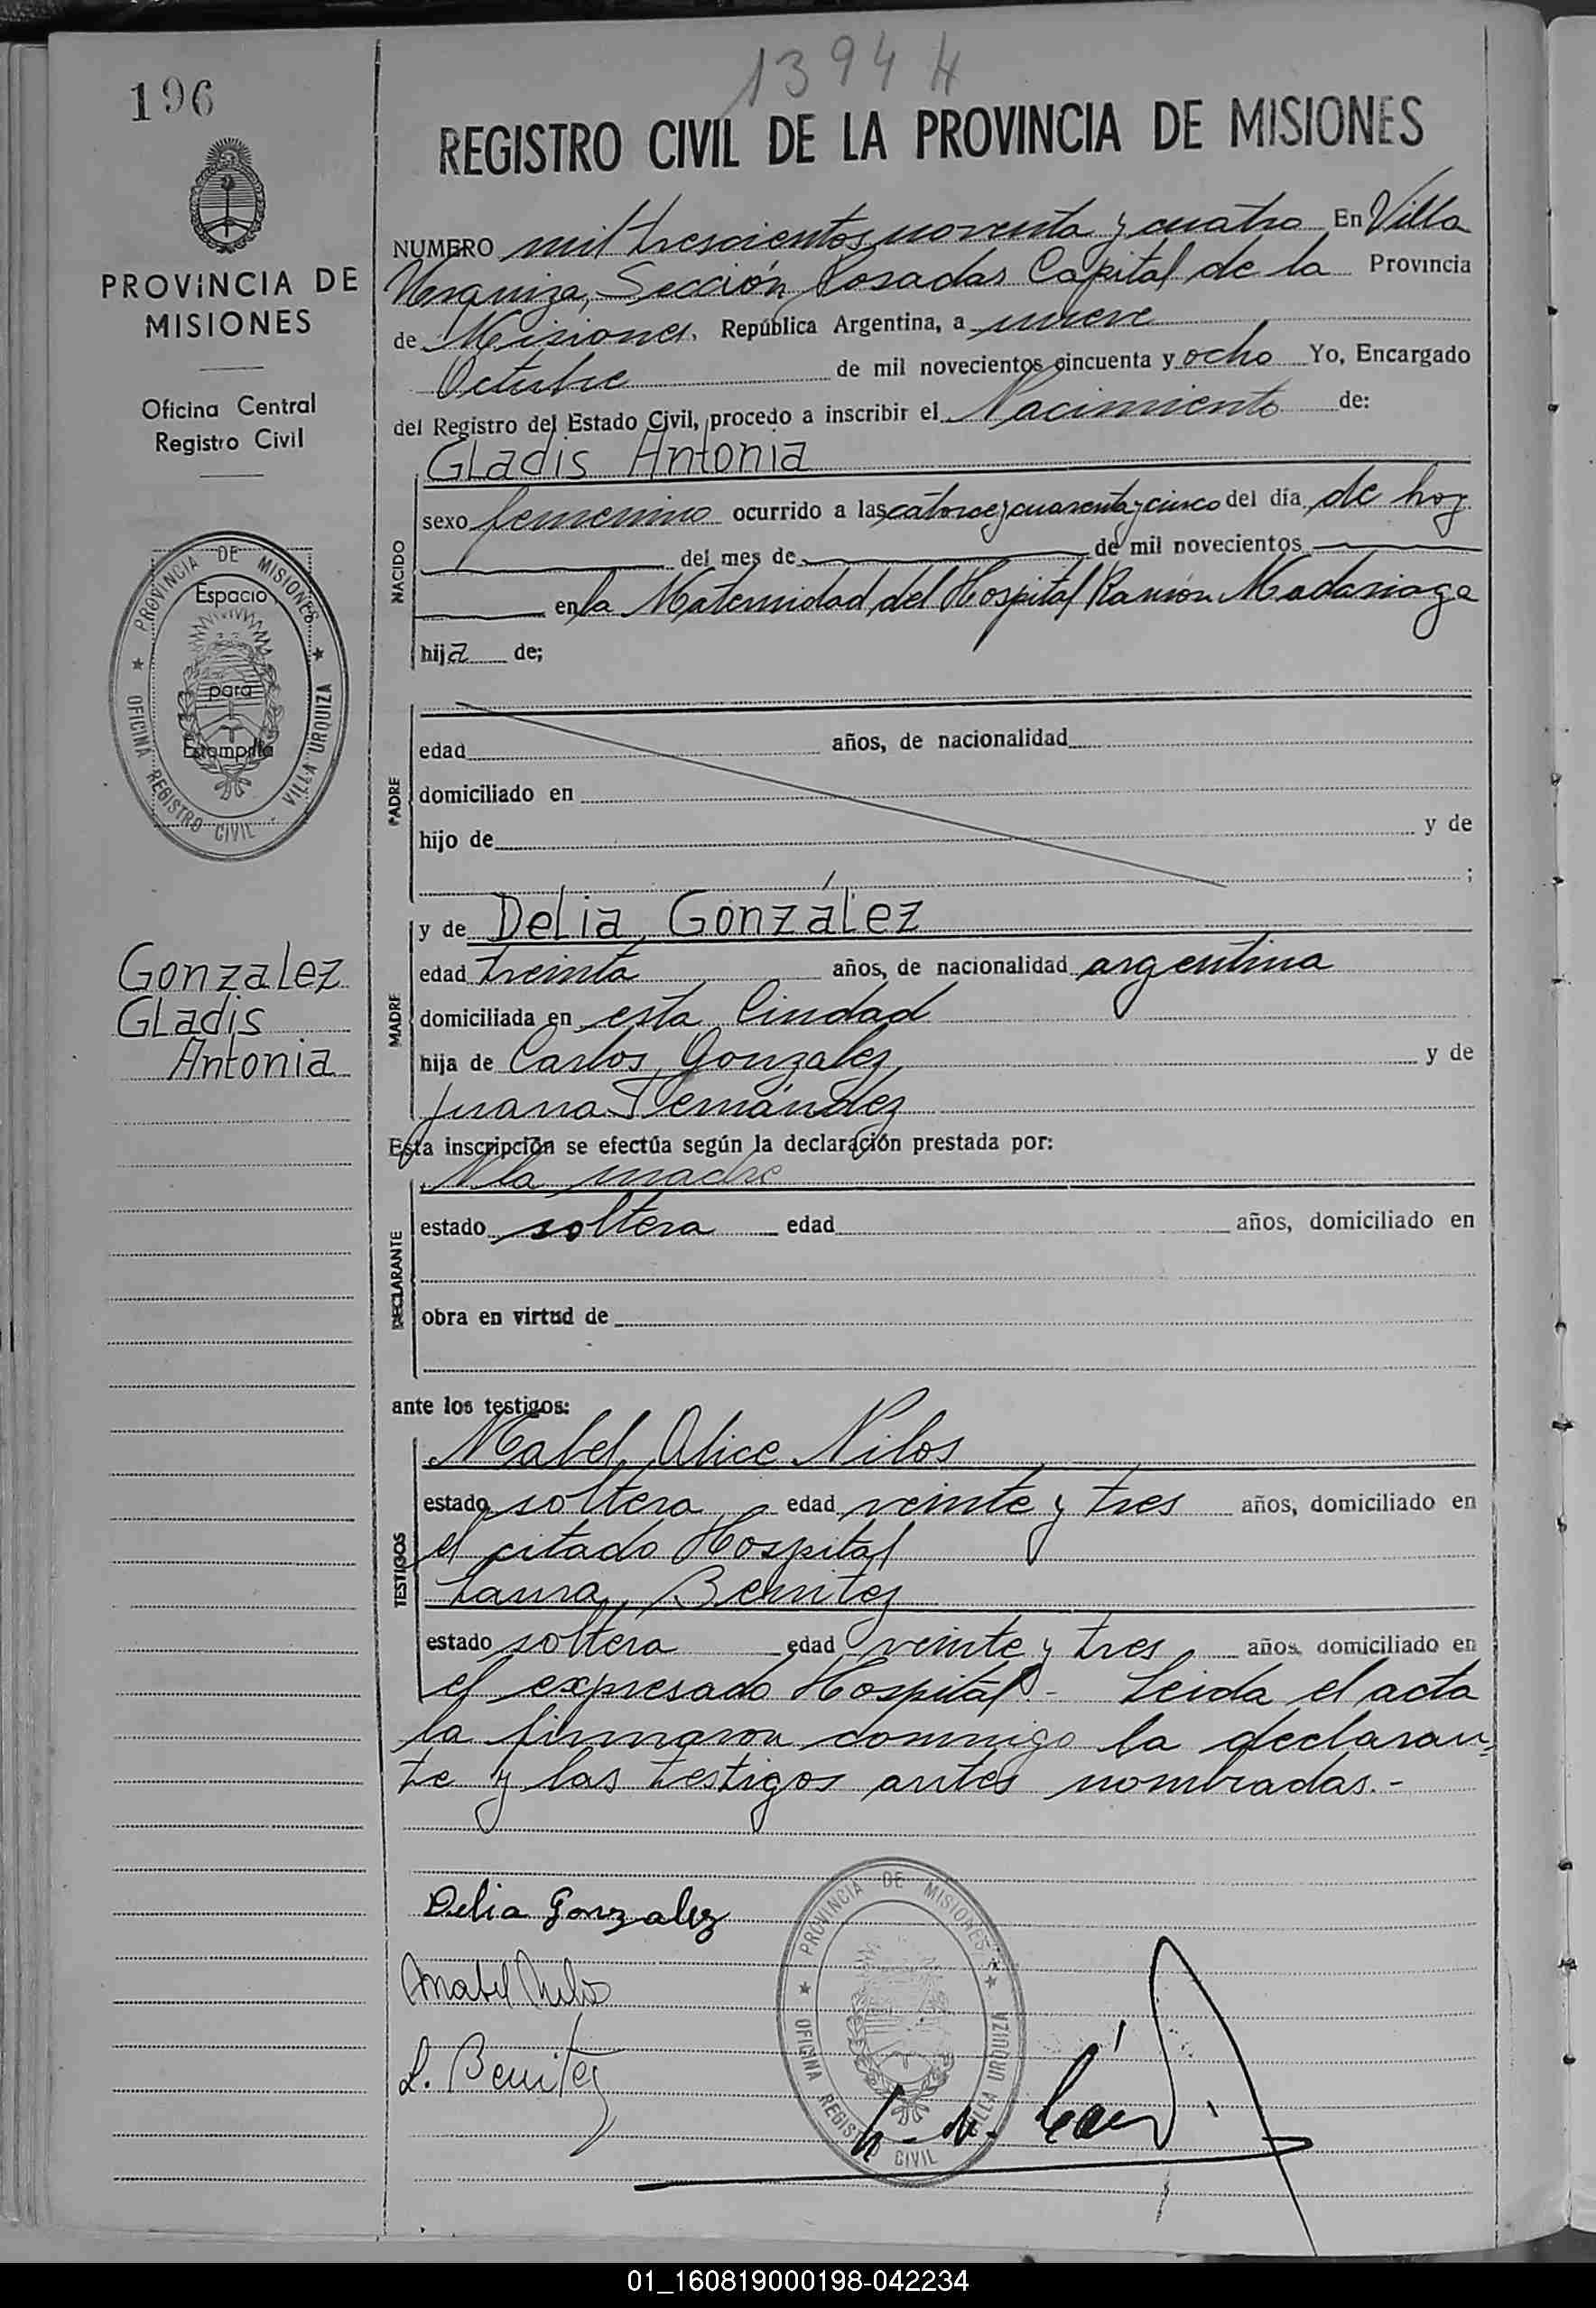 1394 H
196
PROVINCIA DE
MISIONES
Oficina Central
Registro Civil
PROVINCIA DE MISIONES
OFICINA REGISTRO CIVIL - VILLA URQUIZA
Espacio
para
Estampilla
Gonzalez
Gladis
Antonia
REGISTRO CIVIL DE LA PROVINCIA DE MISIONES
NUMERO mil trescientos noventa y cuatro En Villa
Urquiza, Sección Posadas Capital de la Provincia
de Misiones. República Argentina, a nueve
Octubre de mil novecientos cincuenta y ocho Yo, Encargado
del Registro del Estado Civil, procedo a inscribir el Nacimiento de:
NACIDO
Gladis Antonia
sexo femenino ocurrido a las catorce y cuarenta y cinco del día de hoy
del mes de de mil novecientos
en la Maternidad del Hospital Ramón Madariaga
hija de;
PADRE
edad años, de nacionalidad
domiciliado en
hijo de y de
;
MADRE
y de Delia González
edad treinta años, de nacionalidad argentina
domiciliada en esta Ciudad
hija de Carlos Gonzalez y de
Juana Fernández
Esta inscripción se efectúa según la declaración prestada por:
DECLARANTE
la madre
estado soltera edad años, domiciliado en
obra en virtud de
ante los testigos:
TESTIGOS
Mabel Alice Nilos
estado soltera edad veinte y tres años, domiciliado en
el citado Hospital
Laura Benitez
estado soltera edad veinte y tres años, domiciliado en
el expresado Hospital - Leida el acta
la firmaron conmigo la declaran-
te y las testigos antes nombradas.-
Delia Gonzalez
Mabel Nilos
L. Benitez
PROVINCIA DE MISIONES
OFICINA REGISTRO CIVIL VILLA URQUIZA
01_160819000198-042234